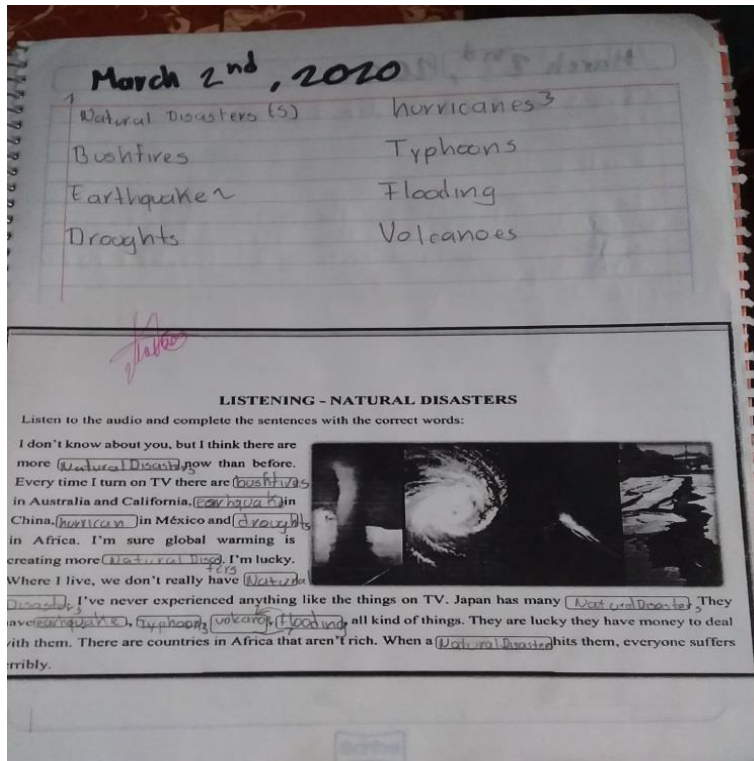 March 2nd, 2020
1
Natural Disasters (s)
hurricanes 3
Bushfires
Typhoons
Earthquake 2
Flooding
Droughts
Volcanoes
LISTENING - NATURAL DISASTERS
Listen to the audio and complete the sentences with the correct words:
I don't know about you, but I think there are
more Natural Disasters now than before.
Every time I turn on TV there are bushfires
in Australia and California, earhquak in
China, hurrican in México and droughts
in Africa. I'm sure global warming is
creating more Natural Disasters. I'm lucky.
Where I live, we don't really have Natural
Disasters, I've never experienced anything like the things on TV. Japan has many Natural Disasters, They
ave earhquake, Typhoon, volcano, flooding, all kind of things. They are lucky they have money to deal
ith them. There are countries in Africa that aren't rich. When a Natural Disaster hits them, everyone suffers
rribly.